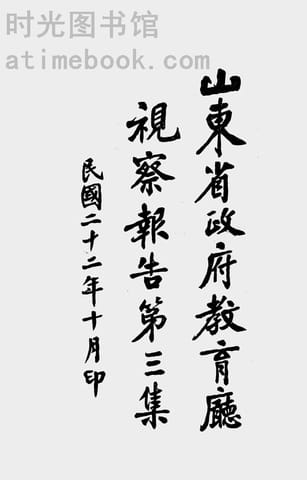 时光图书馆
atimebook.com
山東省政府教育廳
視察報告第三集
民國二十二年十月印